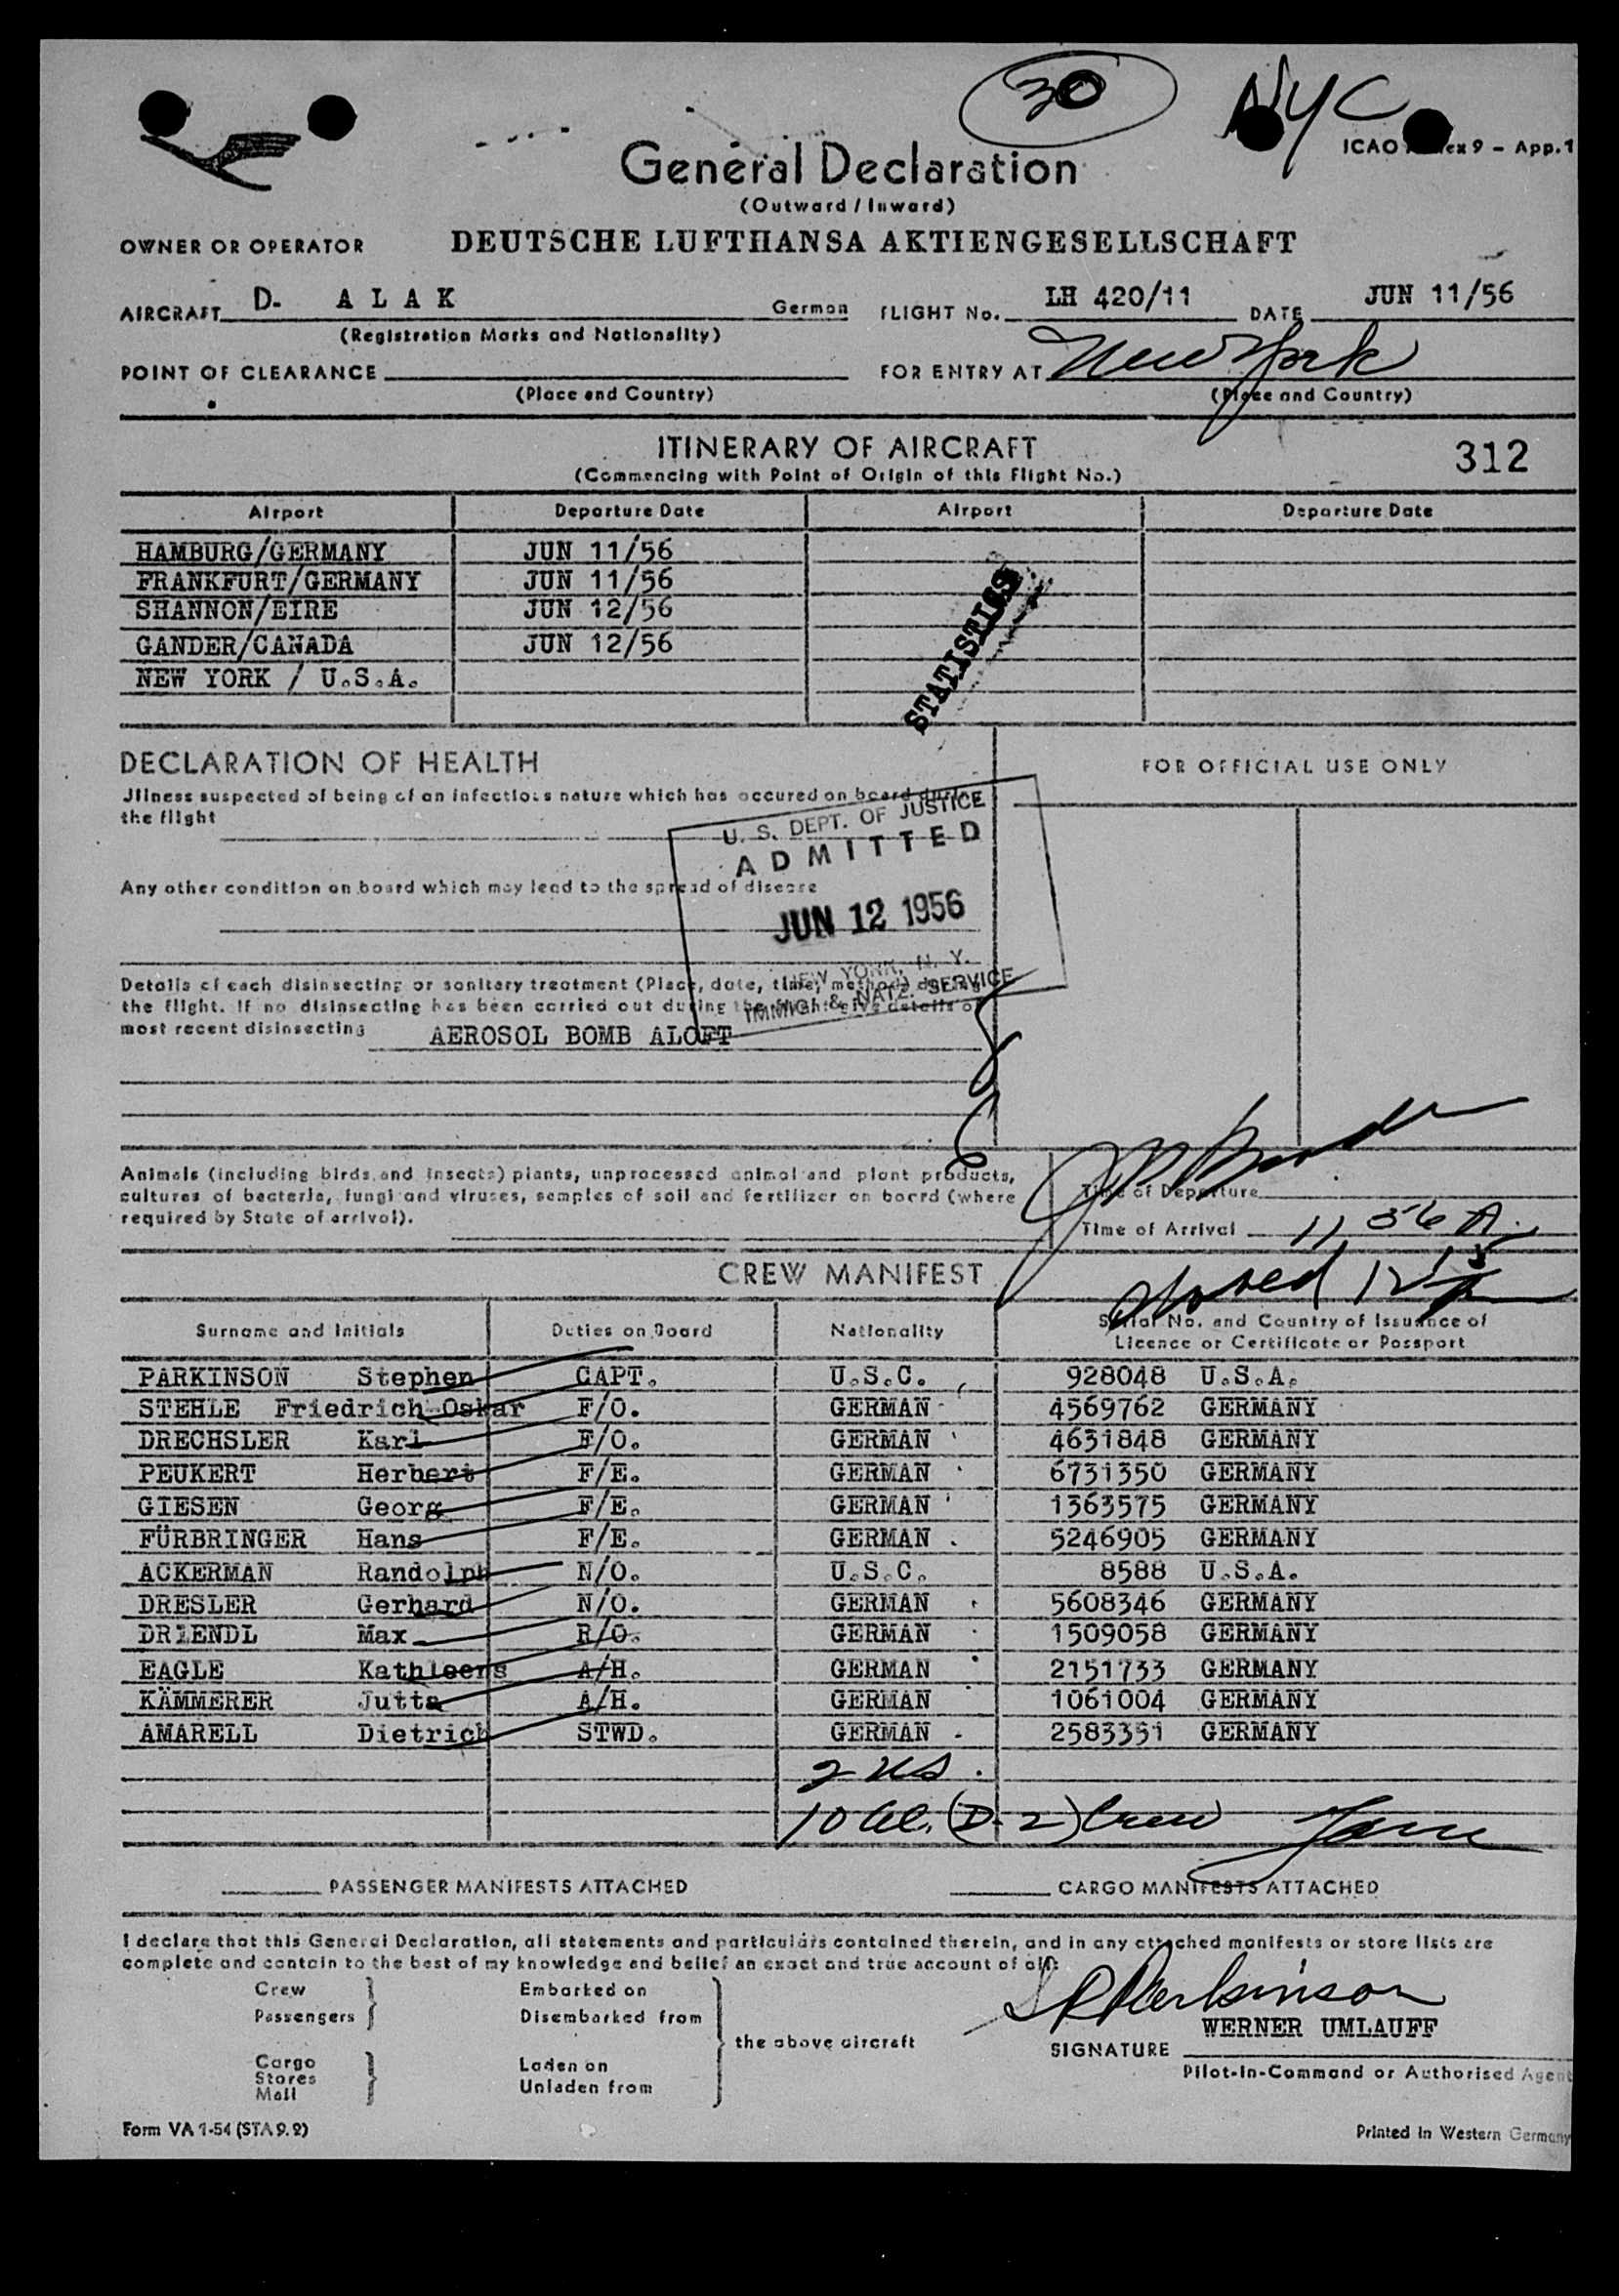 30
NYC
ICAO Annex 9 - App.1
General Declaration
(Outward / Inward)
OWNER OR OPERATOR DEUTSCHE LUFTHANSA AKTIENGESELLSCHAFT
AIRCRAFT D- A L A K German FLIGHT No. LH 420/11 DATE JUN 11/56
(Registration Marks and Nationality)
POINT OF CLEARANCE FOR ENTRY AT New York
(Place and Country) (Place and Country)
ITINERARY OF AIRCRAFT 312
(Commencing with Point of Origin of this Flight No.)
Airport Departure Date Airport Departure Date
HAMBURG/GERMANY JUN 11/56
FRANKFURT/GERMANY JUN 11/56
SHANNON/EIRE JUN 12/56
GANDER/CANADA JUN 12/56
NEW YORK / U.S.A.
STATISTICS
DECLARATION OF HEALTH FOR OFFICIAL USE ONLY
Jllness suspected of being of an infectious nature which has occured on board during
the flight
U. S. DEPT. OF JUSTICE
ADMITTED
Any other condition on board which may lead to the spread of disease
JUN 12 1956
NEW YORK, N. Y.
IMMIG. & NATZ. SERVICE
Details of each disinsecting or sanitary treatment (Place, date, time, method) during
the flight. If no disinsecting has been carried out during the flight give details of
most recent disinsecting AEROSOL BOMB ALOFT
Animals (including birds and insects) plants, unprocessed animal and plant products,
cultures of bacteria, fungi and viruses, samples of soil and fertilizer on board (where
required by State of arrival).
Time of Departure
Time of Arrival 11 56 A.
CREW MANIFEST
Surname and Initials Duties on Board Nationality Serial No. and Country of Issuance of
Licence or Certificate or Passport
PARKINSON Stephen CAPT. U.S.C. 928048 U.S.A.
STEHLE Friedrich Oskar F/O. GERMAN 4569762 GERMANY
DRECHSLER Karl F/O. GERMAN 4631848 GERMANY
PEUKERT Herbert F/E. GERMAN 6731350 GERMANY
GIESEN Georg F/E. GERMAN 1363575 GERMANY
FÜRBRINGER Hans F/E. GERMAN 5246905 GERMANY
ACKERMAN Randolph N/O. U.S.C. 8588 U.S.A.
DRESLER Gerhard N/O. GERMAN 5608346 GERMANY
DRIENDL Max R/O. GERMAN 1509058 GERMANY
EAGLE Kathleens A/H. GERMAN 2151733 GERMANY
KÄMMERER Jutta A/H. GERMAN 1061004 GERMANY
AMARELL Dietrich STWD. GERMAN 2583351 GERMANY
2 US.
10 al. (D-2) Crew
PASSENGER MANIFESTS ATTACHED CARGO MANIFESTS ATTACHED
I declare that this General Declaration, all statements and particulars contained therein, and in any attached manifests or store lists are
complete and contain to the best of my knowledge and belief an exact and true account of all:
Crew Embarked on
Passengers Disembarked from
the above aircraft
Cargo Laden on
Stores
Mail Unladen from
Parkinson
WERNER UMLAUFF
SIGNATURE
Pilot-In-Command or Authorised Agent
Form VA 1-54 (STA 9.2) Printed in Western Germany